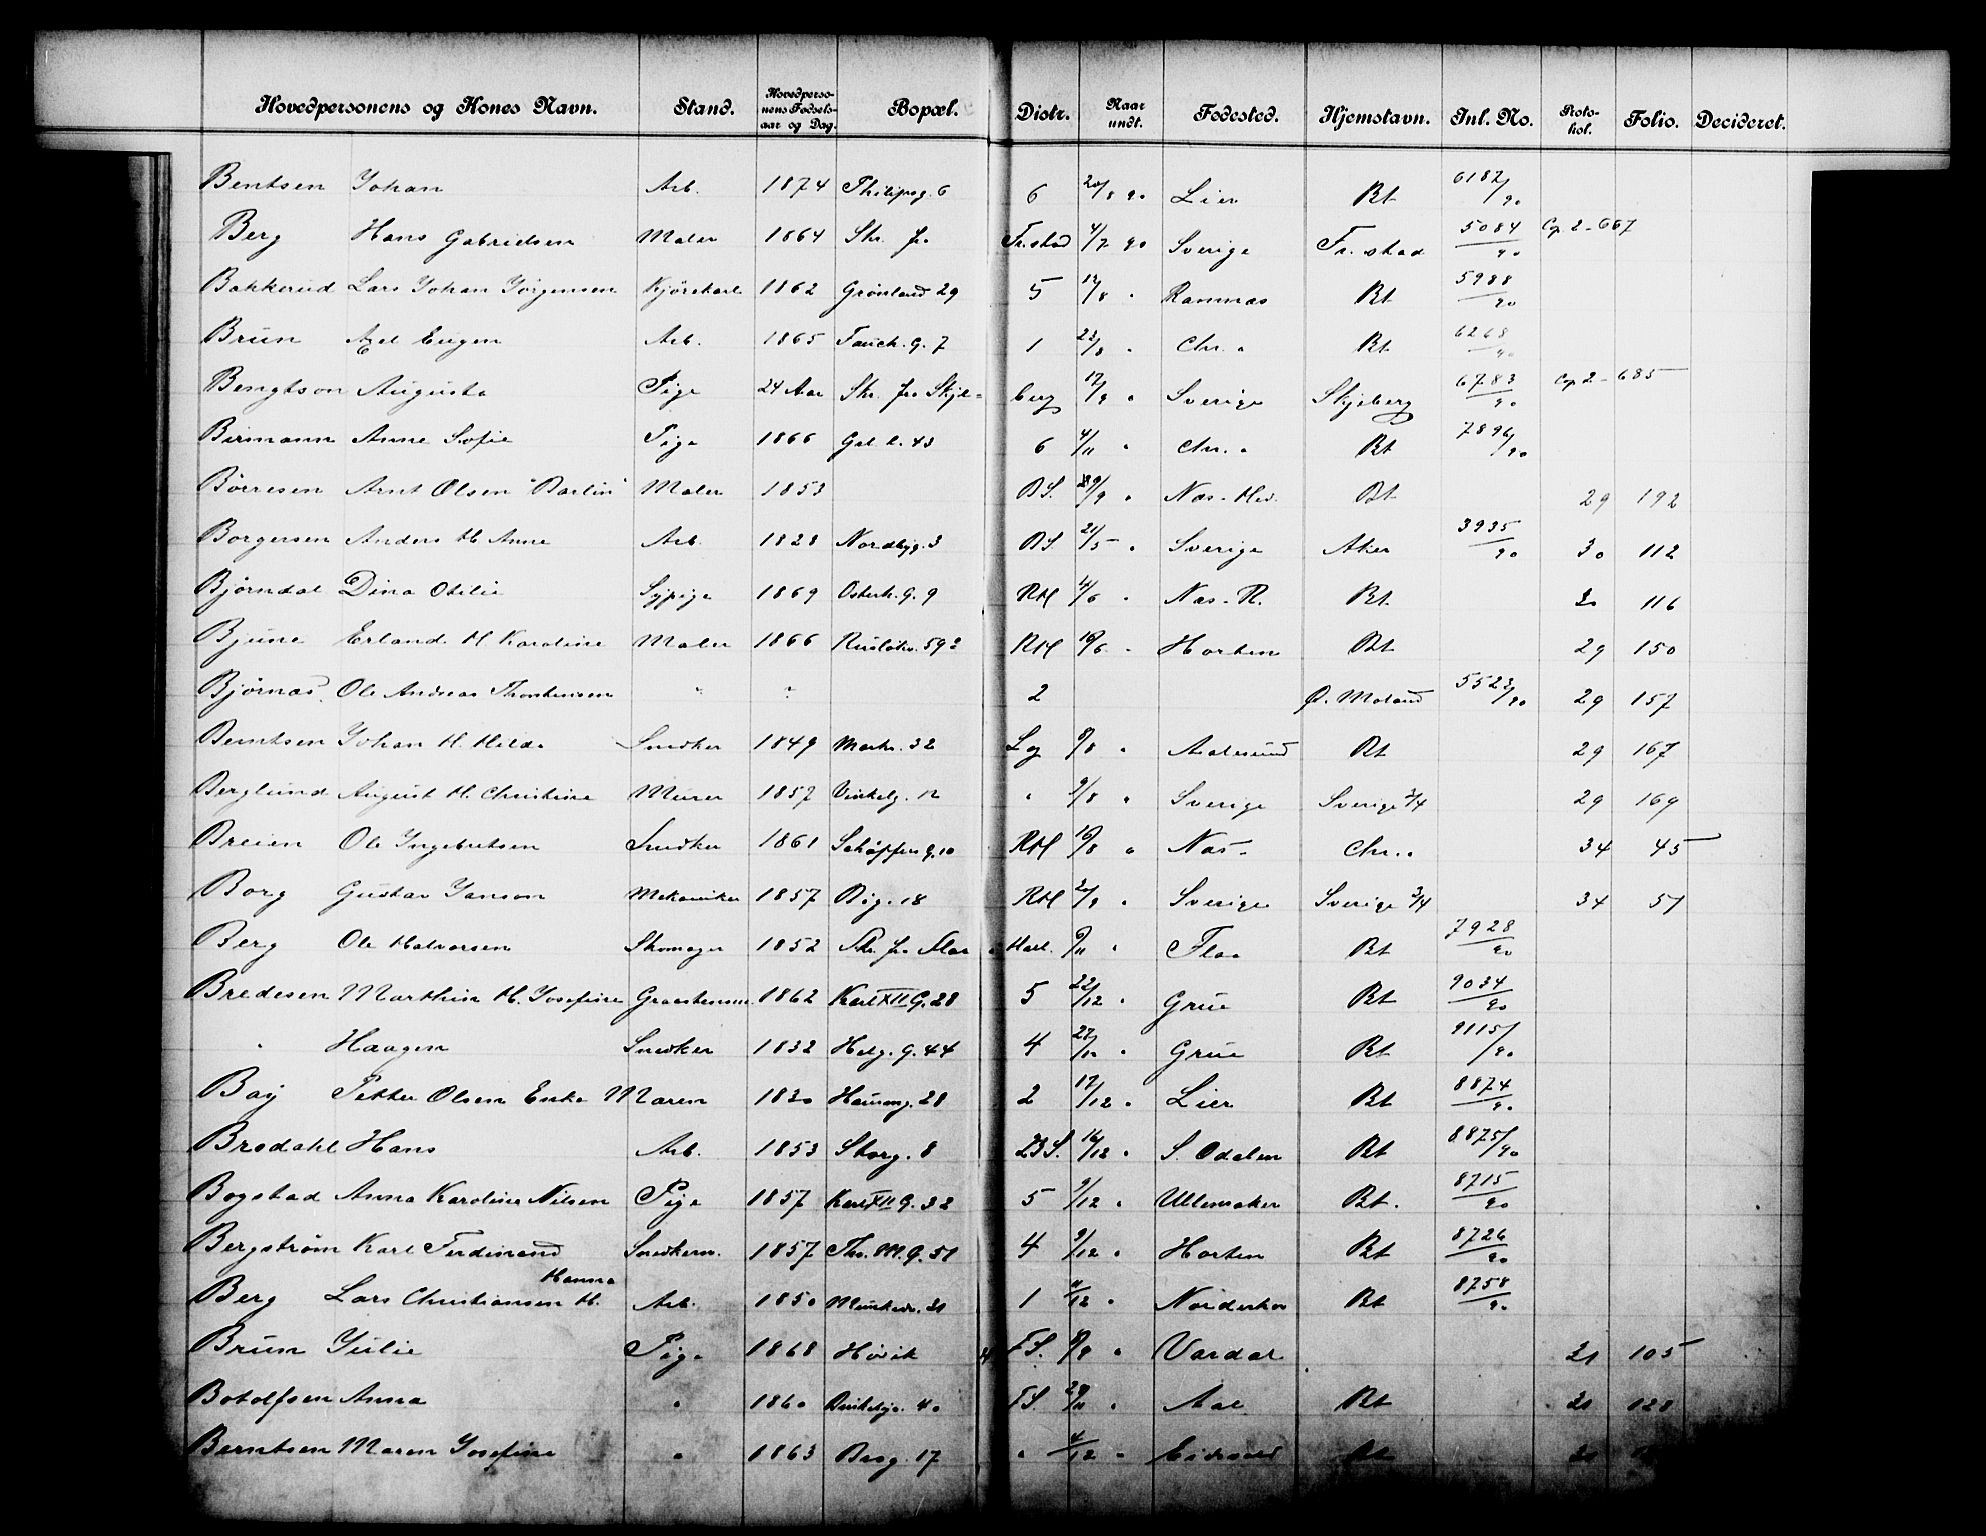 Hovedpersonens og Kones Navn. Stand. Hovedpersonens Fødselsaar og Dag. Bopæl. Distr. Naar undt. Fødested. Hjemstavn. Inl. No. Protokol. Folio. Decideret.
Bentsen Johan Arb. 1874 Philipsg. 6 6 20/8 90 Lier Bt 6182/90
Berg Hans Gabrielsen Maler 1864 Skr. fra Fr.stad 4/7 90 Sverige Fr. stad 5084/90 Cop. 2 - 667
Bakkerud Lars Johan Jørgensen Kjørekarl 1862 Grønland 29 5 12/8 " Ramnæs Bt 5988/90
Brun Axel Eugen Arb. 1865 Fauch. G. 7 1 22/8 " Chr. a Bt 6268/90
Bengtson Augusta Pige 24 Aar Skr. fra Skjeberg 17/9 " Sverige Skjeberg 6783/90 Cop 2 - 685
Birmann Anne Sofie Pige 1866 Gal. l. 43 6 4/11 " Chr. a Bt 7896/90
Børresen Arnt Olsen "Barlin" Maler 1853 BS. 29/9 " Næs - Hed. Bt 29 192
Borgersen Anders H Anne Arb. 1828 Nordbyg. 3 BS. 21/5 " Sverige Aker 3935/90 30 112
Bjørndal Dina Otilie Sypige 1869 Osterh. G. 9 RH 4/6 " Næs - R. Bt. 30 116
Bjune Erland H Karoline Maler 1866 59 RH 10/6 " Horten Bt 29 150
Bjørnæs. Ole Andreas Thorstensen " " 2 Ø. Moland 5523/90 29 157
Berntsen Johan H. Hilda Snedker 1849 Markv. 32 Lg 8/8 " Aalesund Bt 29 167
Berglund August H. Christine Murer 1857 Vinkelg. 12 " 9/8 " Sverige Sverige 3/4 29 169
Breien Ole Ingebretsen Snedker 1861 Schøffer G. 10 RH 16/8 " Næs - Chr. a 34 45
Borg Gustav Janson Mekaniker 1857 Big. 18 RH 2/9 " Sverige Sverige 3/4 34 51
Berg Ole Halvorsen Skomager 1852 Skr. fra Flaa Hall. 6/11 " Flaa Bt 7928/90
Bredesen Marthin H. Josefine 1862 Karl XII G. 28 5 22/12 " Grue Bt 9034/90
" Haagen Snedker 1832 Helg. G. 44 4 27/12 " Grue Bt 9115/90
Bay Petter Olsen Enke Maren 1830 Hausmg. 28 2 17/12 " Lier Bt 8874/90
Brodahl Hans Arb. 1853 Storg. 8 2BS. 16/12 " S. Odalen Bt 8875/90
Bogstad Anna Karoline Nilsen Pige 1857 Karl XII G. 32 5 9/12 " Ullensaker Bt. 8715/90
Bergstrøm Karl Ferdinand Snedkersv. 1857 Ths. M. G. 51 4 9/12 " Horten Bt 8726/90
Hanna
Berg Lars Christiansen H. Arb. 1850 Munkedv. 21 1 11/12 " Norderhov Bt 8758/90
Brun Julie Pige 1868 Høvik FS. 8/9 " Vardal 31 105
Botolfsen Anna " 1860 40 FS. 29/11 " Aal Bt 31 128
Berntsen Maren Josefine " 1863 Berg. 17 " 4/12 " Eidsvold Bt 31